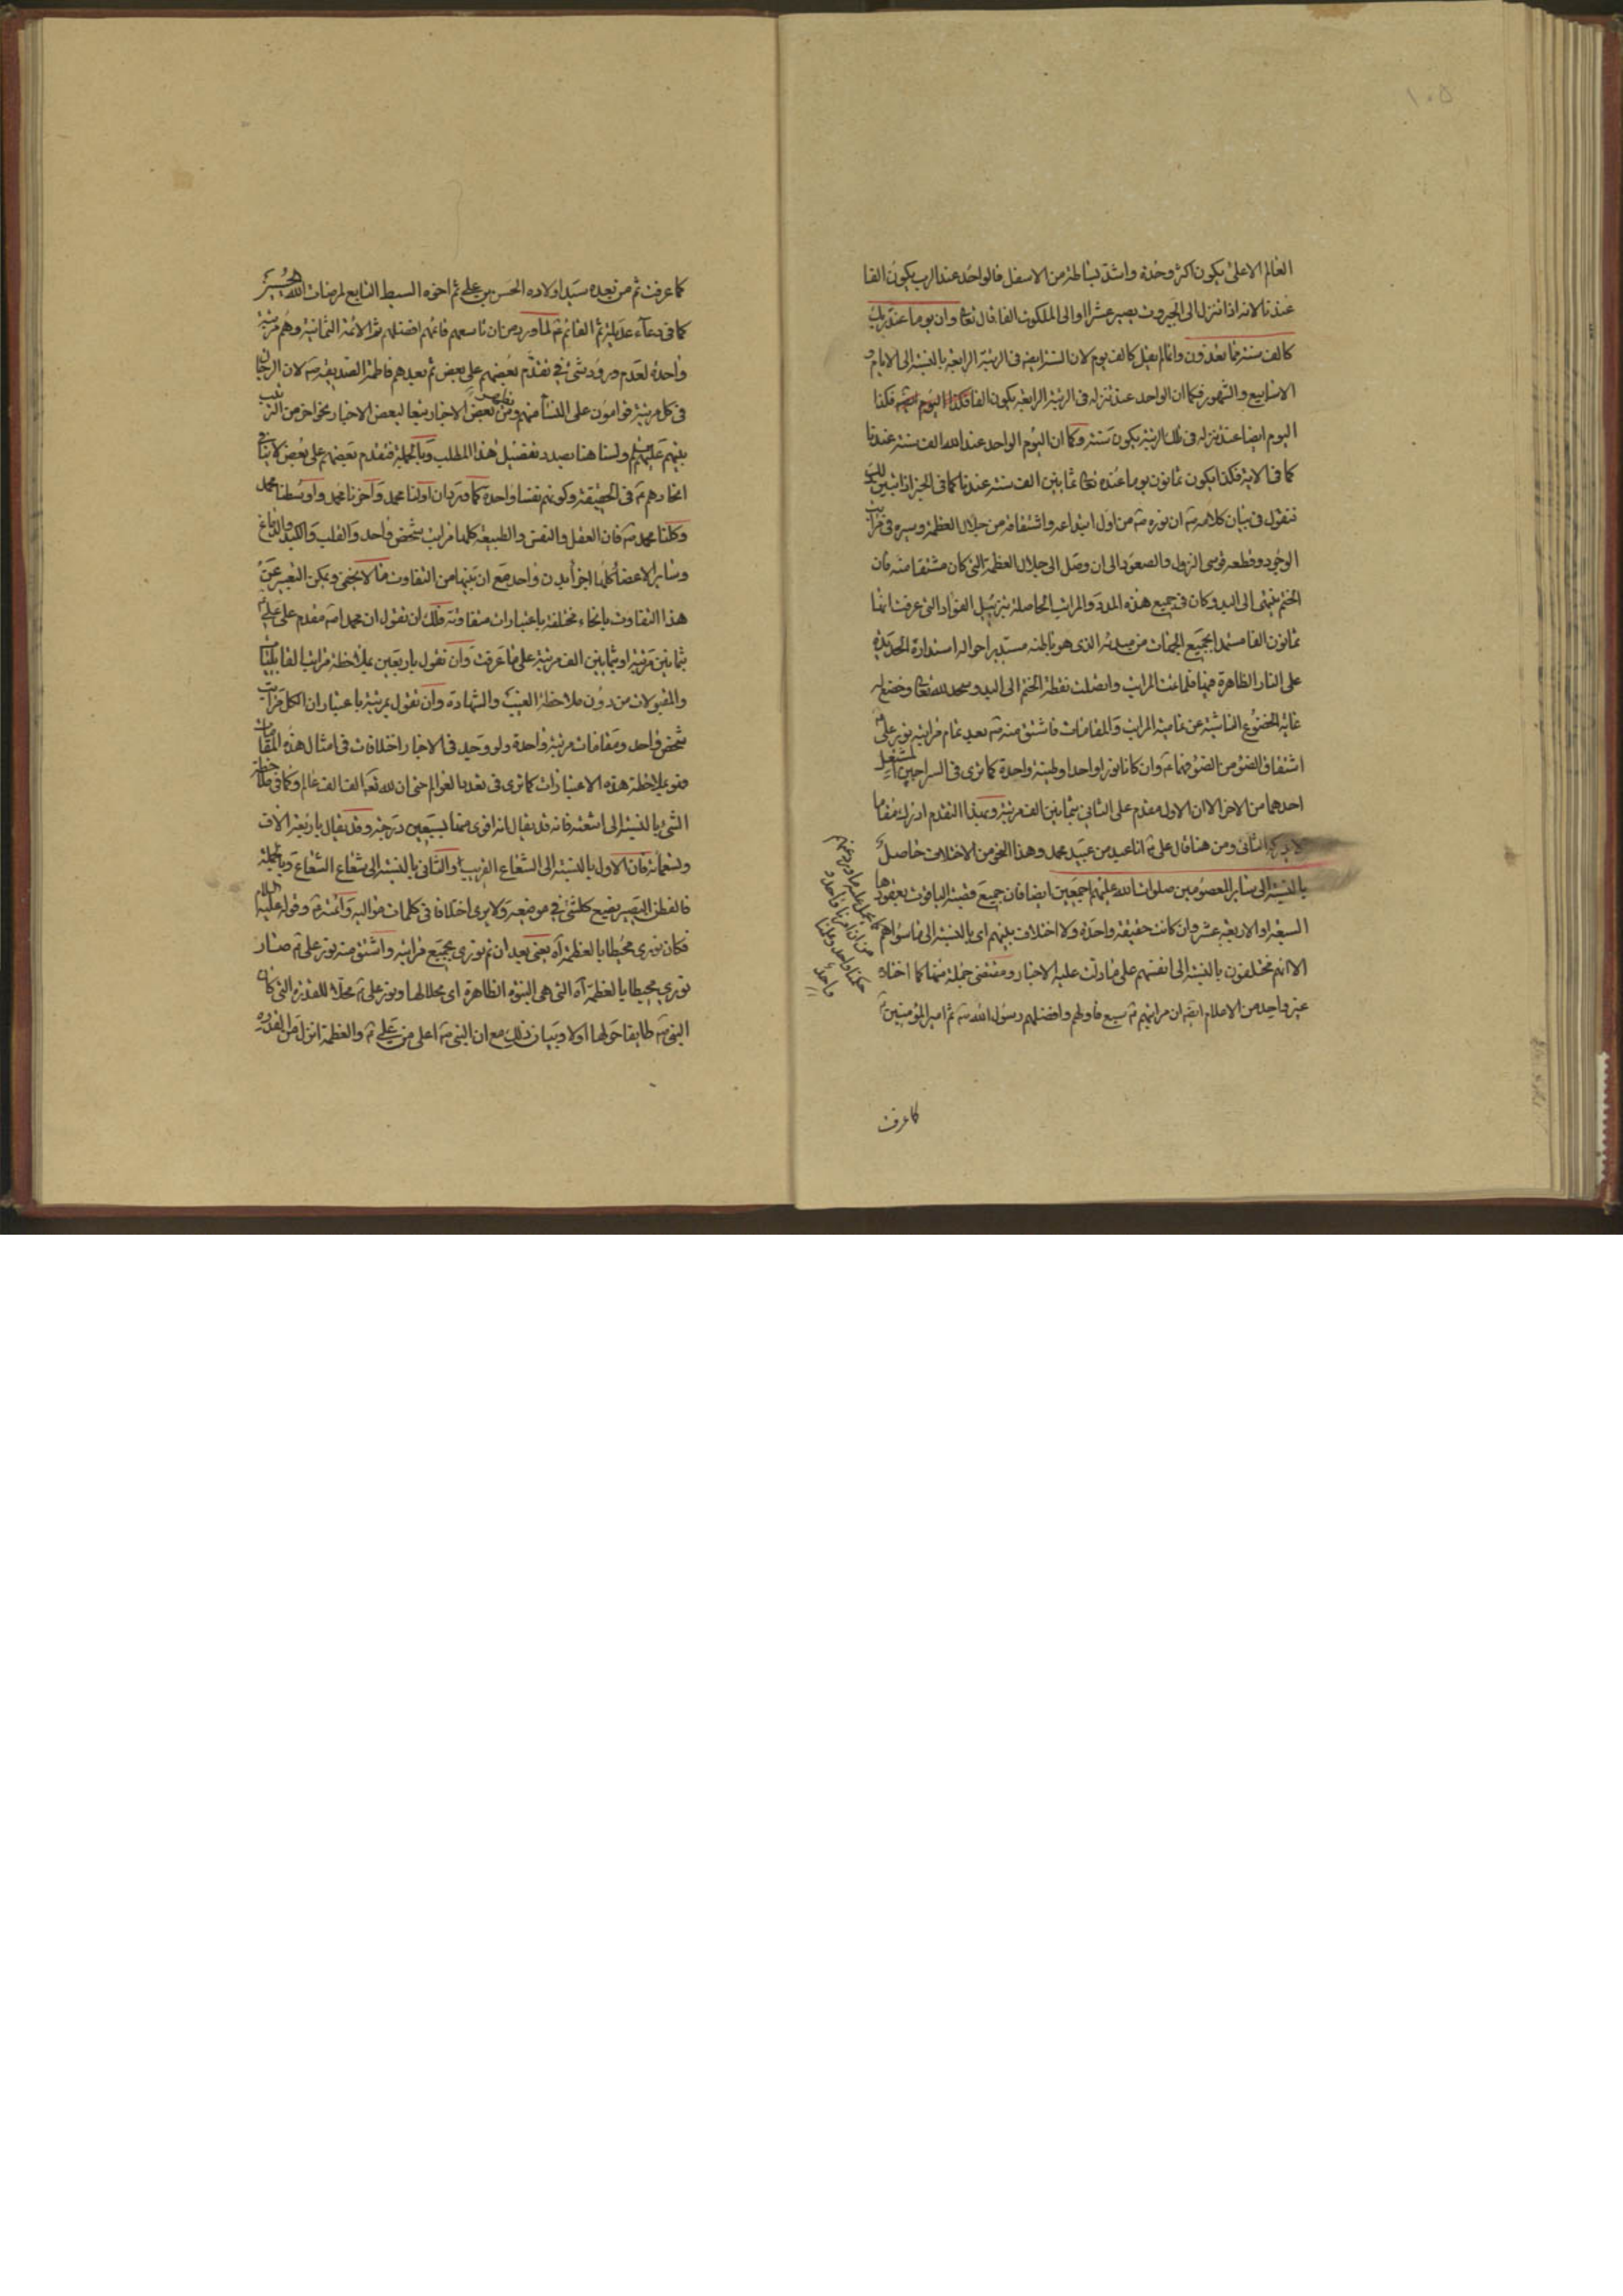 ۱۰۵
العالم الاعلی یکون اکثر وحدة واشد بساطة من الاسفل فالواحد عند الرب یکون الفا
عندنا لانه اذا تنزل الی الجبروت یصیر عشرا والی الملکوت الفا قال تعا وان یوما عند ربک
کالف سنة مما تعدون وانما لم یقل کالف یوم لان السنة ایضا فی الرتبة الرابعة بالنسبة الی الایام و
الاسابیع والشهور فکما ان الواحد عند تنزله فی الرتبة الرابعة یکون الفا فکذا
الیوم ایضا عند تنزله فی تلک الرتبة یکون سنة وکما ان الیوم الواحد عند الله الف سنة عندنا
کما فی الایة فکذا یکون ثمانون یوما عنده تعا ثمانین الف سنة عندنا کما فی الخبر اذا تبین لک
فنقول فی بیان کلامه ان نوره من اول ابتداعه واشتقاقه من جلال العظمة وسیره فی مراتب
الوجود وقطعه قوسی النزول والصعود الی ان وصل الی جلال العظمة التی کان مشتقا منه فان
الختم ینتهی الی البدو کان فی جمیع هذه المدد والمراتب الحاصلة التی عرفت انها
ثمانون الفا مستمدا بجمیع الجهات من مبدئه الذی هو باطنه مستدیرا حواله استدارة الحدیدة
علی النار الظاهرة فیها فلما تمت المراتب واتصلت نقطة الختم الی البدو سجد لله تعا وخضع له
غایة الخضوع الناشئة عن تمامیة المراتب والمقامات فاشتق منه بعد تمام مراتبه نور علی
اشتقاق الضوء من الضوء فهما وان کانا نورا واحدا وطینة واحدة کما تری فی السراجین المشتعل
احدهما من الاخر الا ان الاول مقدم علی الثانی بثمانین الف مرتبة وبهذا التقدم ادرک مقاما
لا یدرکه الثانی ومن هنا قال علی انا عبد من عبید محمد وهذا النحو من الاختلاف حاصل
بالنسبة الی سایر المعصومین صلوات الله علیهم اجمعین ایضا فان جمیع قصبة الیاقوت بعقودها
السبعة او الاربعة عشر وان کانت حقیقة واحدة ولا اختلاف بینهم ای بالنسبة الی ما سواهم
الا انهم مختلفون بالنسبة الی انفسهم علی ما دلت علیه الاخبار ومقتضی جملة منها کما اختاره
غیر واحد من الاعلام ان مراتبهم سبع فاولهم وافضلهم رسول الله ثم امیر المؤمنین
کما عرفت
کما عرفت ثم من بعده سید اولاده الحسن بن علی ثم اخوه السبط التابع لمرضات الله الحسین
کما فی دعاء عدیلة ثم القائم لما ورد من ان تاسعهم قائمهم افضلهم ثم الائمة الثمانیة وهم مرتبة
واحدة لعدم ورود شئ فی تقدم بعضهم علی بعض ثم بعدهم فاطمة الصدیقة لان الرجال
فی کل مرتبة قوامون علی النساء منهم ومن بعض الاخبار تبعا لبعض الاخبار نحو اخر من الترتیب
بینهم علیهم السلم ولسنا هنا بصدد تفصیل هذا المطلب وبالجملة فتقدم بعضهم علی بعض لا ینافی
اتحادهم فی الحقیقة وکونهم نفسا واحدة کما ورد بان اولنا محمد وآخرنا محمد واوسطنا محمد
وکلنا محمد فان العقل والنفس والطبیعة کلها مراتب شخص واحد والقلب والکبد والدماغ
وسایر الاعضاء کلها اجزاء بدن واحد مع ان بینها من التفاوت ما لا یخفی ویمکن التعبیر عن
هذا التفاوت بانحاء مختلفة باعتبارات متفاوتة فلک ان تقول ان محمدا مقدم علی علی
بثمانین مرتبة او بثمانین الف مرتبة علی ما عرفت وان تقول باربعین بملاحظة مراتب القابلیات
والمقبولات من دون ملاحظة الغیب والشهادة وان تقول بمرتبة باعتبار ان الکل مراتب
شخص واحد ومقامات مرتبة واحدة ولو وجد فی الاخبار اختلافات فی امثال هذه المقامات
فهو بملاحظة هذه الاعتبارات کما تری فی تعدد العوالم حتی ان لله تعا الف الف عالم وکما فی ملاحظة
الشئ بالنسبة الی اشعته فانه قد یقال انه اقوی منها بسبعین درجة وقد یقال باربعة الاف
وتسعمائة فان الاول بالنسبة الی الشعاع القریب والثانی بالنسبة الی شعاع الشعاع وبالجملة
فالفطن البصیر یضع کلشئ فی موضعه ولا یری اختلافا فی کلمات موالیه وائمته وقوله علیه السلام
فکان نوری محیطا بالعظمة آه یعنی بعد ان تم نوری بجمیع مراتبه واشتق منه نور علی صار
نوری محیطا بالعظمة آه التی هی النبوة الظاهرة ای محلا لها ونور علی محلا للقدرة التی کان
النبی طائفا حولها اولا وبیان ذلک مع ان النبی اعلی من علی والعظمة انزل من القدرة